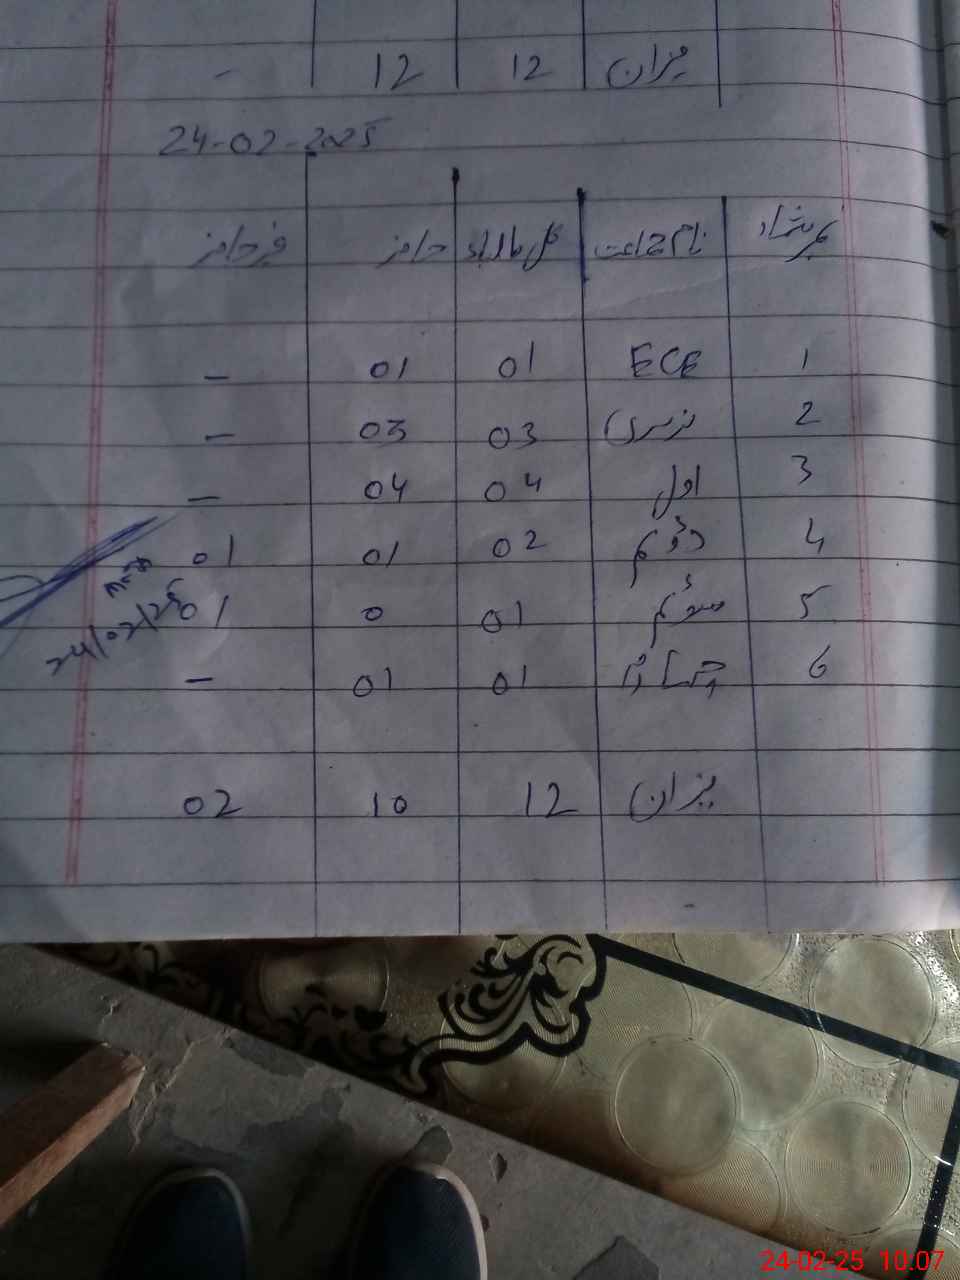 میزان 12 12 -
24-02-2025
نمبر شمار نام جماعت کل طلباء حاضر غیر حاضر
1 ECE 01 01 -
2 نرسری 03 03 -
3 اول 04 04 -
4 دوئم 02 01 01
5 سوئم 01 0 01
24/02/25
6 چہارم 01 01 -
میزان 12 10 02
24-02-25 10.07